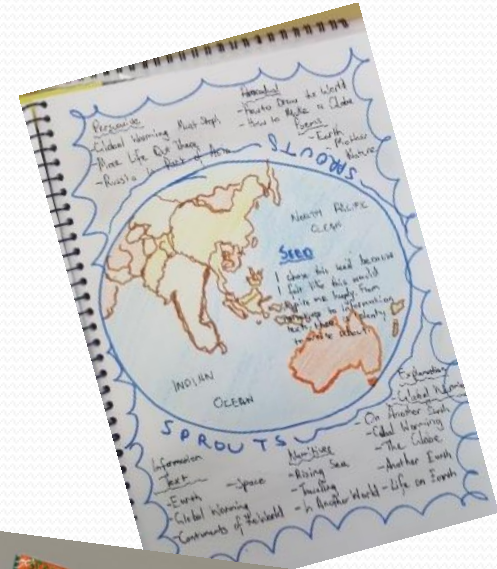 Persuasive
-Global Warming Must Stop!
-More Life Out There
-Russia is Part of Asia
-How to Draw the World
-How to Make a Globe
Poems
-Earth
-Mother
Nature
SPROUTS
NORTH PACIFIC
OCEAN
SEED
I chose this seed because
I felt like this would
inspire me hugely. From
to information
text, there is plenty
to write about.
INDIAN
OCEAN
SPROUTS
Information
Text
-Earth
-Global Warming
-Continents of the World
-Space
Narratives
-Rising Sea
-Travelling
-In Another World
Explanation
-Global Warming
-On Another Earth
-Global Warming
-The Globe
-Another Earth
-Life on Earth